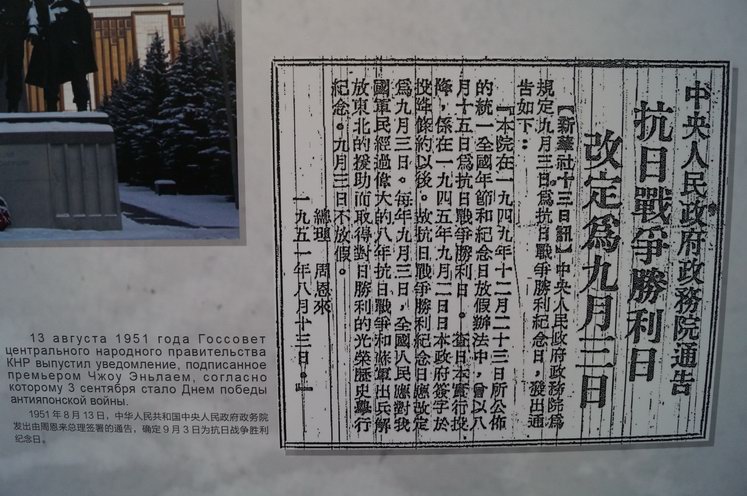 中央人民政府政务院通告
抗日戰爭勝利日
改定爲九月三日
【新華社十三日訊】中央人民政府政務院爲
規定九月三日爲抗日戰爭勝利紀念日，發出通
告如下：
『本院在一九四九年十二月二十三日所公佈
的統一全國年節和紀念日放假辦法中，曾以八
月十五日爲抗日戰爭勝利日。查日本實行投
降，係在一九四五年九月二日日本政府簽字於
投降條約以後。故抗日戰爭勝利紀念日應改定
爲九月三日。每年九月三日，全國人民應對我
國軍民經過偉大的八年抗日戰爭和蘇軍出兵解
放東北的援助而取得對日勝利的光榮歷史舉行
紀念。九月三日不放假。
總理　周恩來
一九五一年八月十三日。』
13 августа 1951 года Госсовет
центрального народного правительства
КНР выпустил уведомление, подписанное
премьером Чжоу Эньлаем, согласно
которому 3 сентября стало Днем победы
антияпонской войны.
1951 年 8 月 13 日，中华人民共和国中央人民政府政务院
发出由周恩来总理签署的通告，确定 9 月 3 日为抗日战争胜利
纪念日。